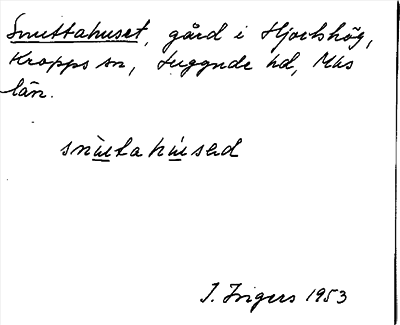 Smuttahuset, gård i Hjortshög,
Kropps sn, Luggude hd, Mhs
län.
smùtahúsed
I. Ingers 1953